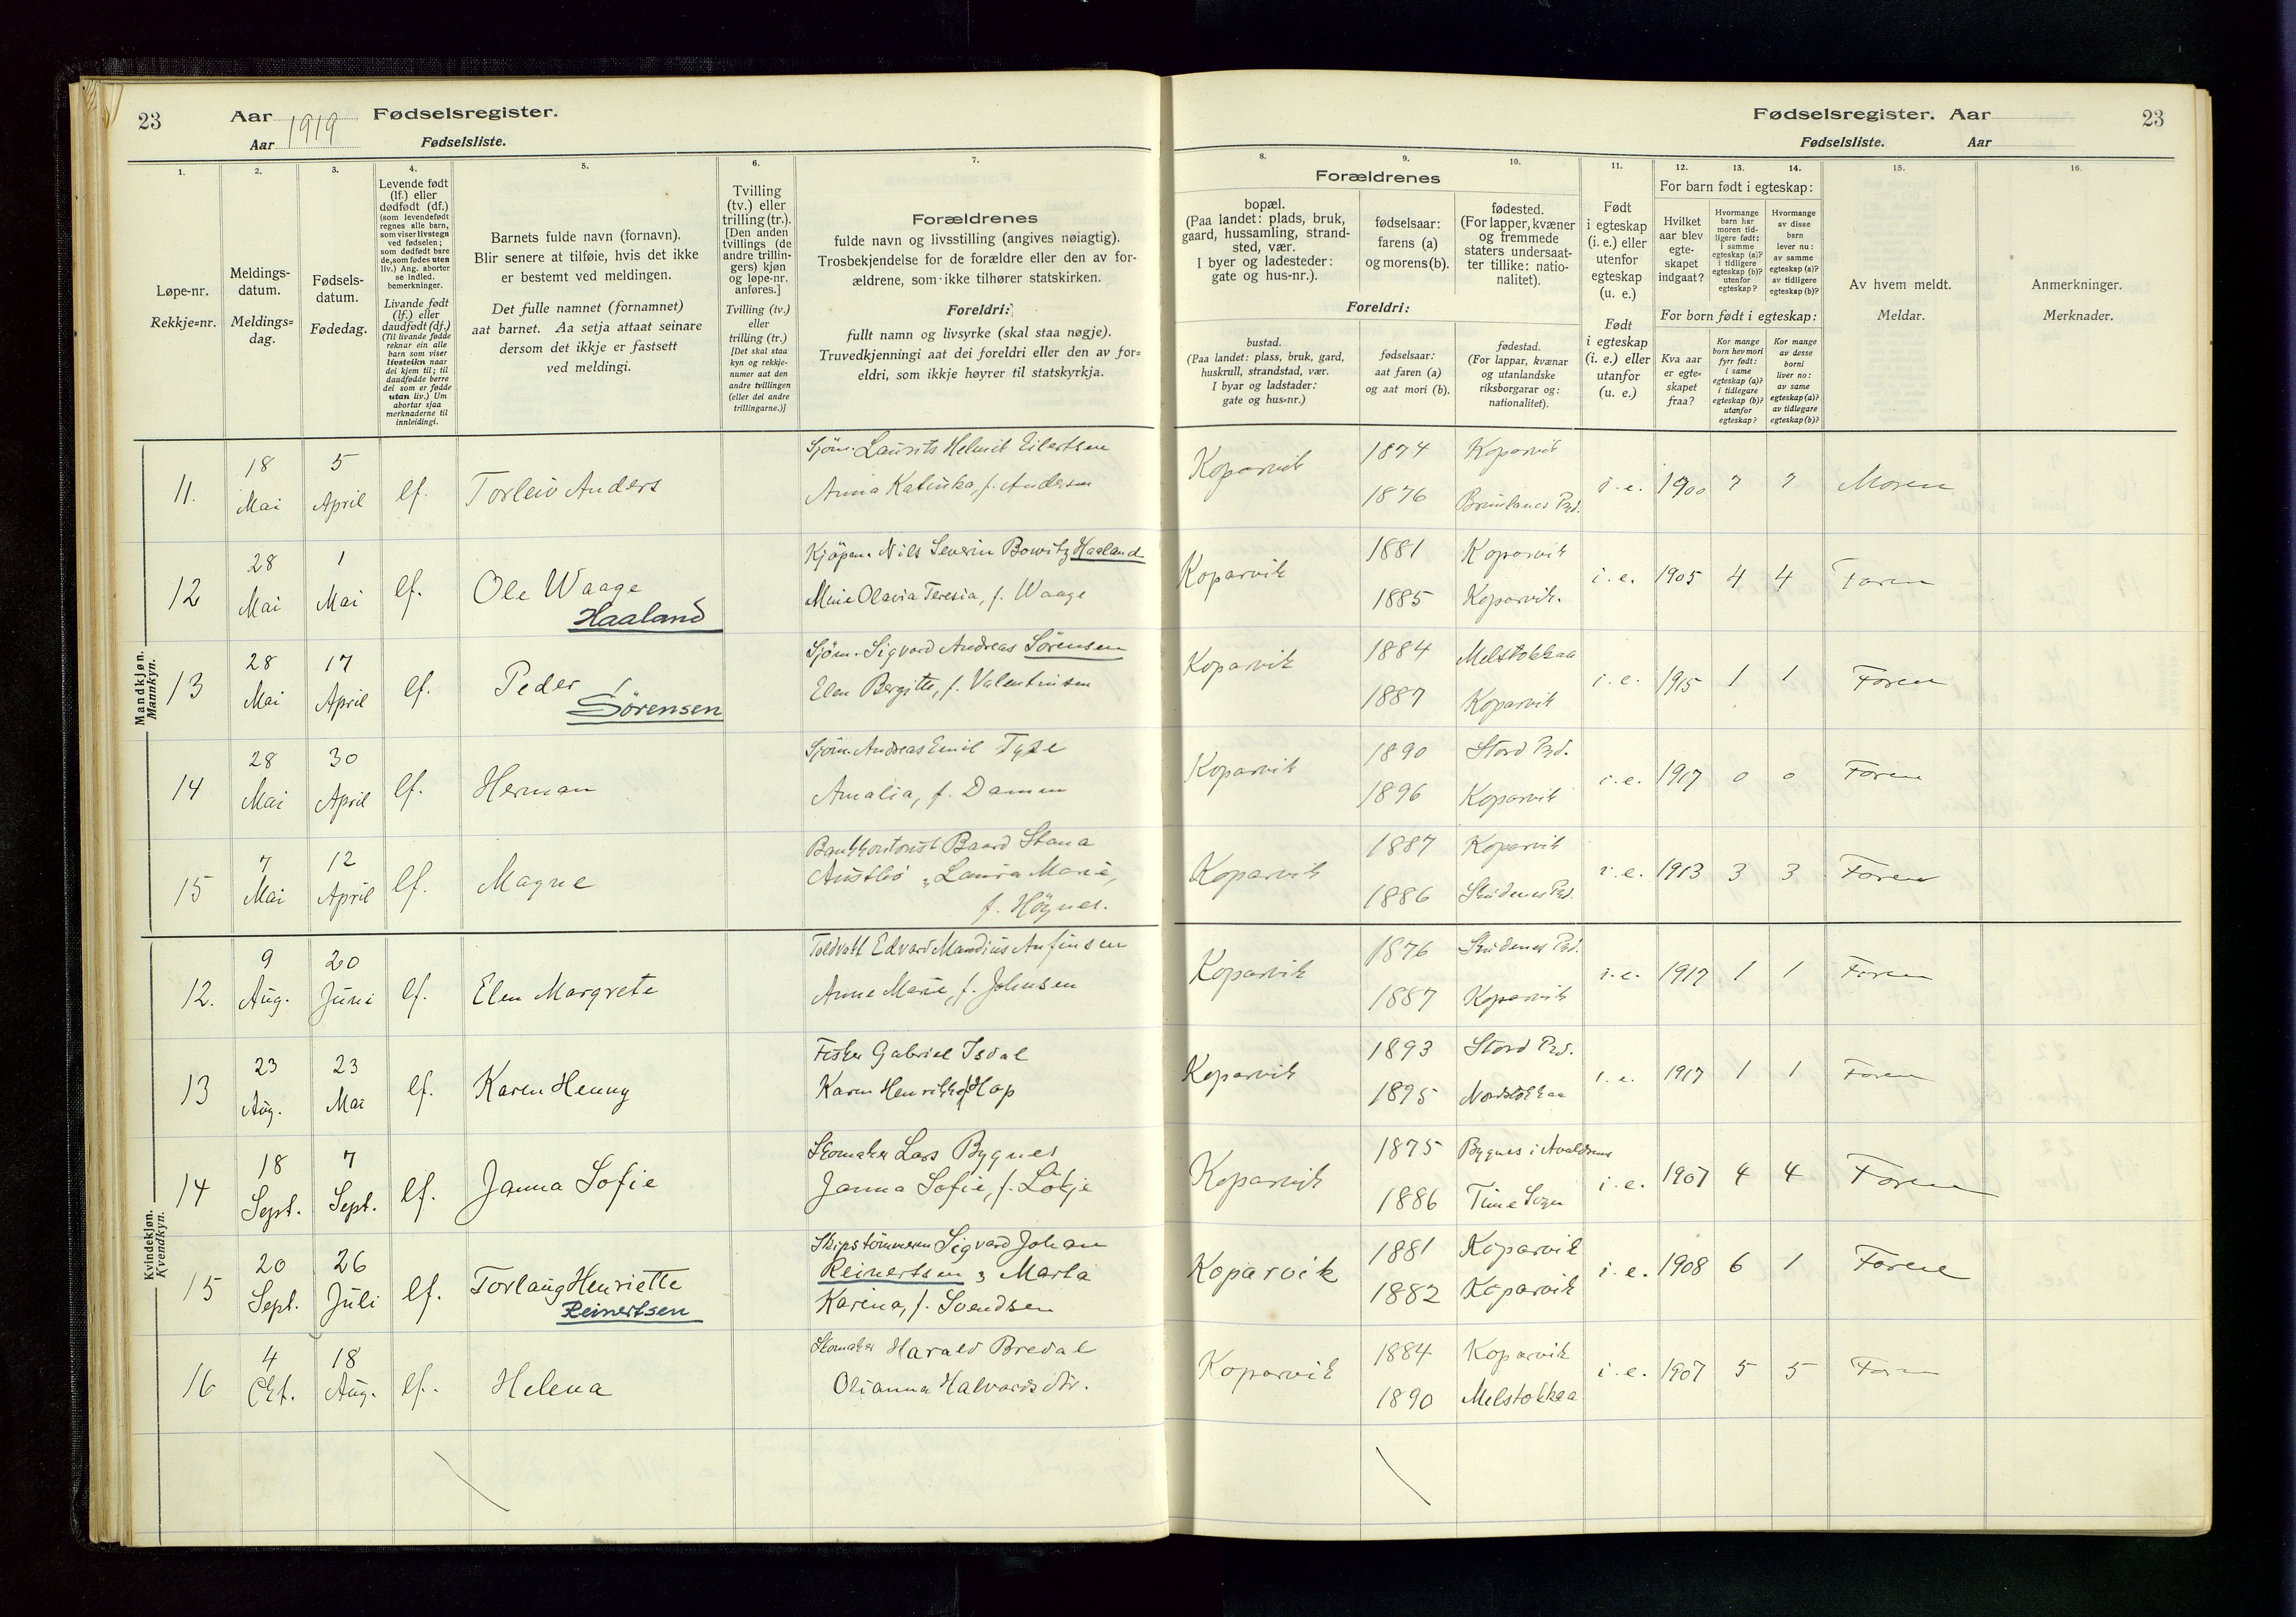 23
Aar 1919 Fødselsregister.
Aar Fødselsliste.
1.
2.
3.
4.
5.
6.
7.
Løpe-nr.
Rekkje=nr.
Meldings-
datum.
Meldings=
dag.
Fødsels-
datum.
Fødedag.
Levende født
(lf.) eller
dødfødt (df.)
(som levendefødt
regnes alle barn,
som viser livstegn
ved fødselen;
som dødfødt bare
de, som fødes uten
liv.) Ang. aborter
se indled.
bemerkninger.
Livande født
(lf.) eller
daudfødt (df.)
(Til livande fødde
reknar ein alle
barn som viser
livsteikn naar
dei kjem til; til
daudfødde berre
dei som er fødde
utan liv.) Um
abortar sjaa
merknaderne til
innleidingi.
Barnets fulde navn (fornavn).
Blir senere at tilføie, hvis det ikke
er bestemt ved meldingen.
Det fulle namnet (fornamnet)
aat barnet. Aa setja attaat seinare
dersom det ikkje er fastsett
ved meldingi.
Tvilling
(tv.) eller
trilling (tr.).
[Den anden
tvillings (de
andre trillin-
gers) kjøn
og løpe-nr.
anføres.]
Tvilling (tv.)
eller
trilling (tr.)
[Det skal staa
kyn og rekkje-
numer aat den
andre tvillingen
(eller dei andre
trillingarne.)]
Forældrenes
fulde navn og livsstilling (angives nøiagtig).
Trosbekjendelse for de forældre eller den av for-
ældrene, som ikke tilhører statskirken.
Foreldri:
fullt namn og livsyrke (skal staa nøgje).
Truvedkjenningi aat dei foreldri eller den av for=
eldri, som ikkje høyrer til statskyrkja.
Mandkjøn.
Mannkyn.
11.
18 Mai
5 April
lf.
Torleiv Anders
Sjøm. Laurits Helmik Eilertsen
Anna Katinka, f. Andersen
12
28 Mai
1 Mai
lf.
Ole Waage
Haaland
Kjøpm. Nils Severin Bowitz Haaland
Mine Olavia Teresia, f. Waage
13
28 Mai
17 April
lf.
Peder
Sörensen
Sjøm. Sigvard Andreas Sørensen
Elen Bergitte, f. Valentinsen
14
28 Mai
30 April
lf.
Herman
Sjøm. Andreas Emil Tyse
Amalia, f. Damm
15
7 Mai
12 April
lf.
Magne
Bankkontorist Baard Stana
Austbö, Laura Marie,
f. Högnes.
Kvindekjøn.
Kvendkyn.
12.
9 Aug.
20 Juni
lf.
Elen Margrete
Toldvakt Edvard Mandius Anfinsen
Anne Marie, f. Johnsen
13
23 Aug.
23 Mai
lf.
Karen Henny
Fisker Gabriel Isdal
Karen Henrikke f. Hop
14
18 Sept.
7 Sept.
lf.
Janna Sofie
Skomaker Lars Bygnes
Janna Sofie, f. Lökje
15
20 Sept.
26 Juli
lf.
Torlaug Henriette
Reinertsen
Skipstømmerm Sigvard Johan
Reinertsen, Marta
Karina, f. Svendsen
16
4 Okt.
18 Aug.
lf.
Helena
Skomaker Harald Bredal
Olianna Halvardsdtr.
Fødselsregister. Aar
23
Fødselsliste. Aar
8.
9.
10.
11.
12.
13.
14.
15.
16.
Forældrenes
bopæl.
(Paa landet: plads, bruk,
gaard, hussamling, strand-
sted, vær.
I byer og ladesteder:
gate og hus-nr.).
fødselsaar:
farens (a)
og morens (b).
fødested.
(For lapper, kvæner
og fremmede
staters undersaat-
ter tillike: natio-
nalitet).
Foreldri:
bustad.
(Paa landet: plass, bruk, gard,
huskrull, strandstad, vær.
I byar og ladstader:
gate og hus=nr.)
fødselsaar:
aat faren (a)
og aat mori (b).
fødestad.
(For lappar, kvænar
og utanlandske
riksborgarar og:
nationalitet).
Født
i egteskap
(i. e.) eller
utenfor
egteskap
(u. e.)
Født
i egteskap
(i. e.) eller
utanfor
(u. e.)
For barn født i egteskap:
Hvilket
aar blev
egte-
skapet
indgaat?
Hvormange
barn har
moren tid-
ligere født:
i samme
egteskap (a)?
i tidligere
egteskap (b)?
utenfor
egteskap?
Hvormange
av disse
barn
lever nu:
av samme
egteskap (a)?
av tidligere
egteskap (b)?
For born født i egteskap:
Kva aar
er egte-
skapet
fraa?
Kor mange
born hev mori
fyrr født:
i same
egteskap (a)?
i tidlegare
egteskap (b)?
utanfor
egteskap?
Kor mange
av desse
borni
liver no:
av same
egteskap (a)?
av tidlegare
egteskap (b)?
Av hvem meldt.
Meldar.
Anmerkninger.
Merknader.
Koparvik
1874 Koparvik
1876 Brunlanes Prd.
i. e. 1900 7 7 Moren
Koparvik
1881 Koparvik
1885 Koparvik.
i. e. 1905 4 4 Faren
Koparvik
1884 Melstokkaa
1887 Koparvik
i. e. 1915 1 1 Faren
Koparvik
1890 Stord Prd.
1896 Koparvik
i. e. 1917 0 0 Faren
Koparvik
1887 Koparvik
1886 Skudenes Prd.
i. e. 1913 3 3 Faren
Koparvik
1876 Skudenes Prd.
1887 Koparvik
i. e. 1917 1 1 Faren
Koparvik
1893 Stord Prd.
1895 Nordstokkaa
i. e. 1917 1 1 Faren
Koparvik
1875 Bygnes i Avaldsnes
1886 Time Sogn
i. e. 1907 4 4 Faren
Koparvik
1881 Koparvik
1882 Koparvik
i. e. 1908 6 1 Faren
Koparvik
1884 Koparvik
1890 Melstokkaa
i. e. 1907 5 5 Faren